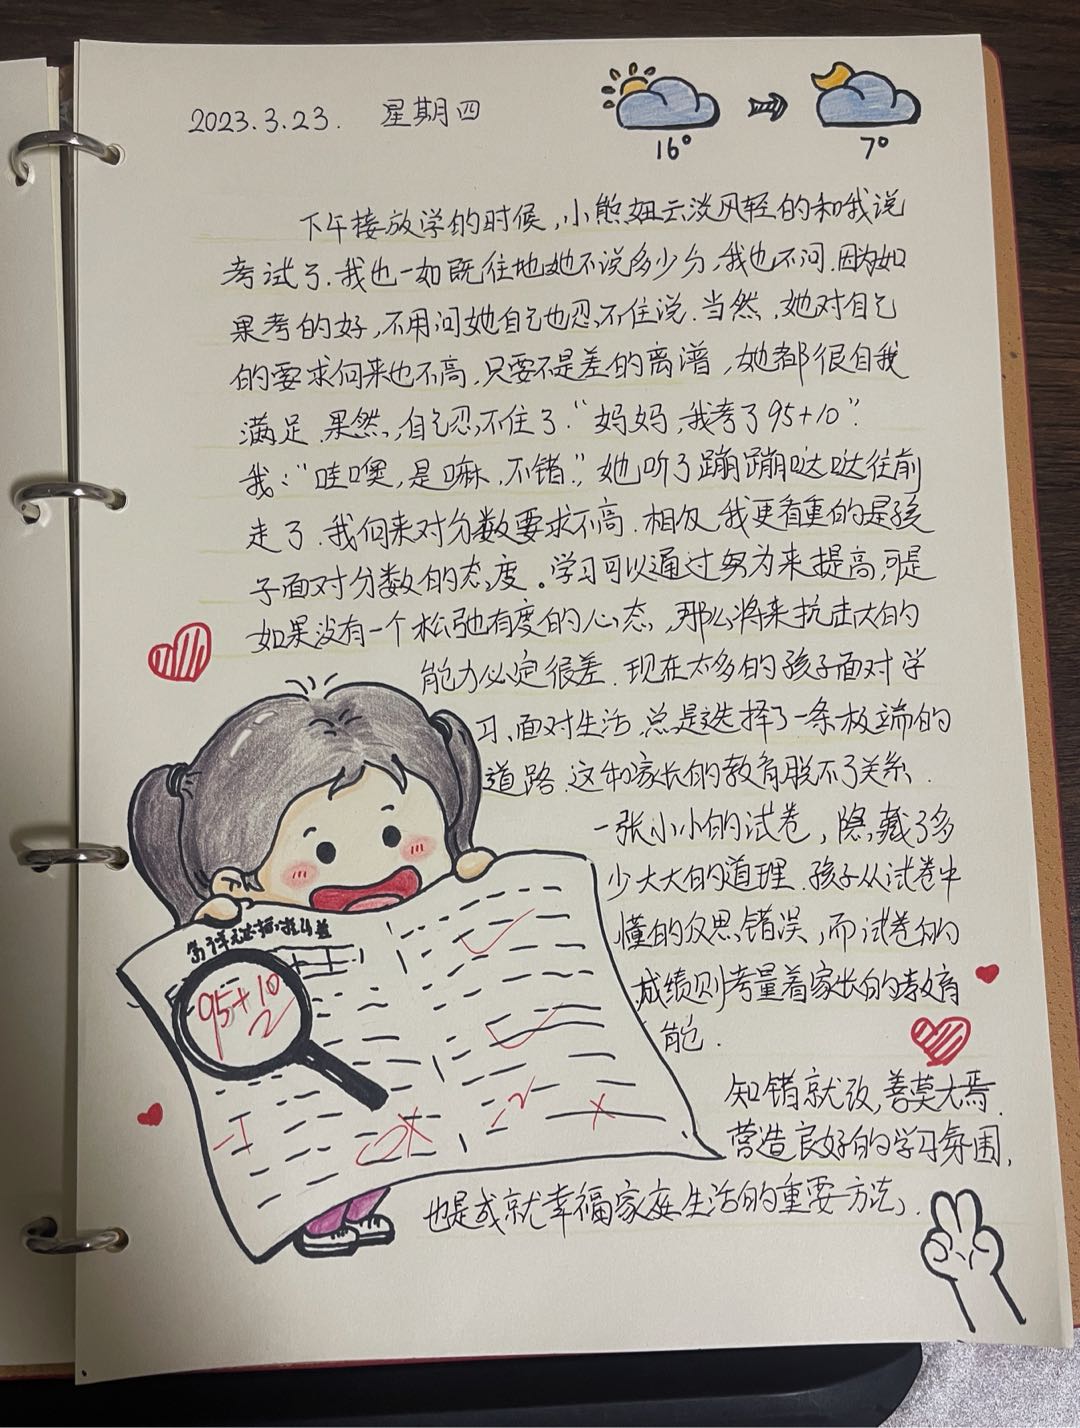 2023.3.23. 星期四
16° 7°
下午接放学的时候,小熊妞云淡风轻的和我说
考试了.我也一如既往地她不说多少分,我也不问.因为如
果考的好,不用问她自己也忍不住说.当然,她对自己
的要求向来也不高,只要不是差的离谱,她都很自我
满足.果然,自己忍不住了.“妈妈,我考了95+10”.
我:“哇噢,是嘛,不错”,她听了蹦蹦哒哒往前
走了.我向来对分数要求不高.相反,我更看重的是孩
子面对分数的态度。学习可以通过努力来提高,可是
如果没有一个松弛有度的心态,那么将来抗击大的
能力必定很差.现在太多的孩子面对学
习、面对生活.总是选择了一条极端的
道路.这和家长的教育脱不了关系.
一张小小的试卷,隐藏了多
少大大的道理.孩子从试卷中
懂的反思错误,而试卷的
成绩则考量着家长的教育
能.
95+10
2
知错就改,善莫大焉.
营造良好的学习氛围,
也是成就幸福家庭生活的重要方法.